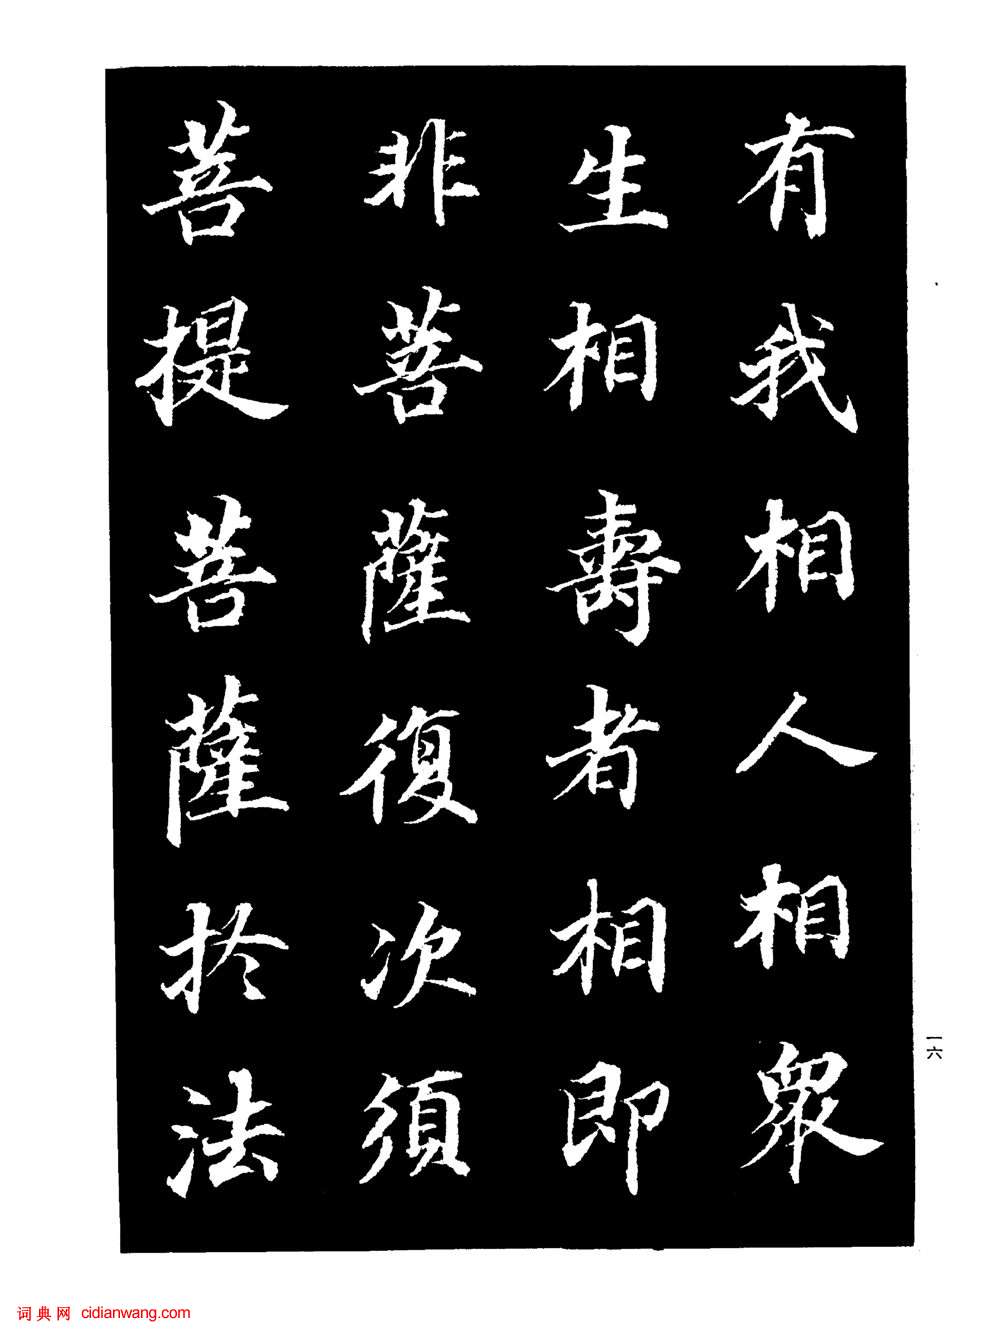 有我相人相眾
生相壽者相即
非菩薩復次須
菩提菩薩於法
一六
词典网 cidianwang.com